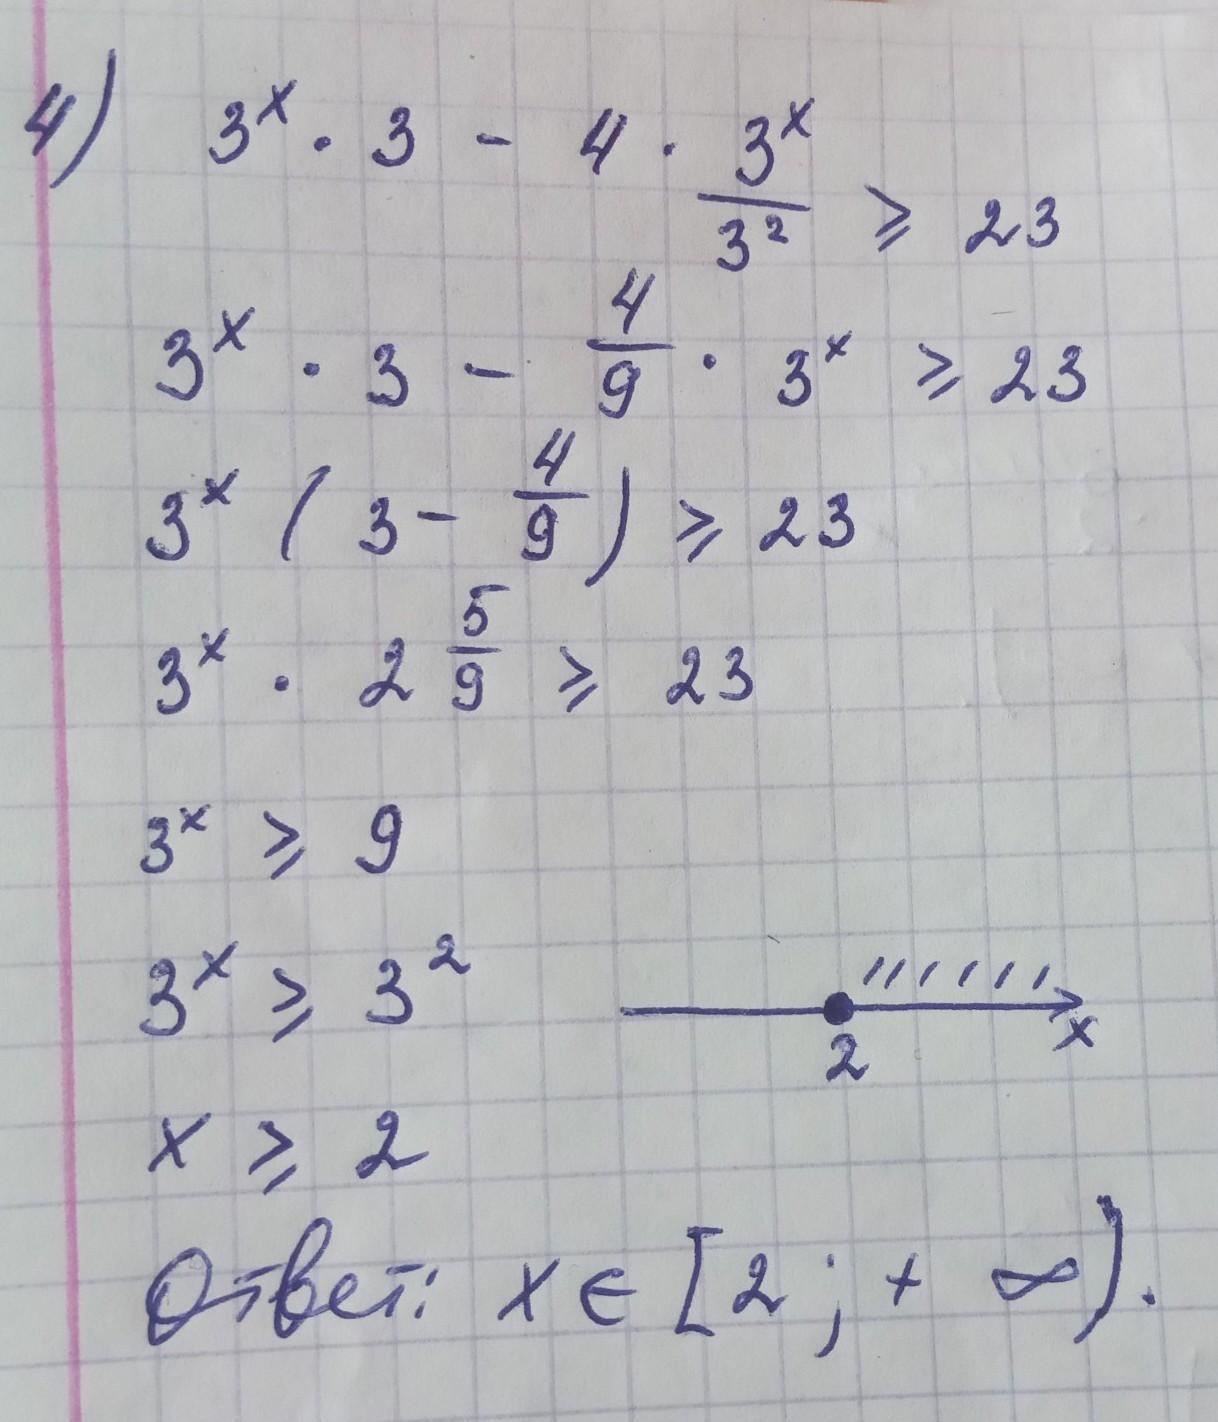 4) 3^x · 3 - 4 · 3^x/3^2 ⩾ 23
3^x · 3 - 4/9 · 3^x ⩾ 23
3^x (3 - 4/9) ⩾ 23
3^x · 2 5/9 ⩾ 23
3^x ⩾ 9
3^x ⩾ 3^2
2 x
x ⩾ 2
Ответ: x ∈ [2; + ∞).